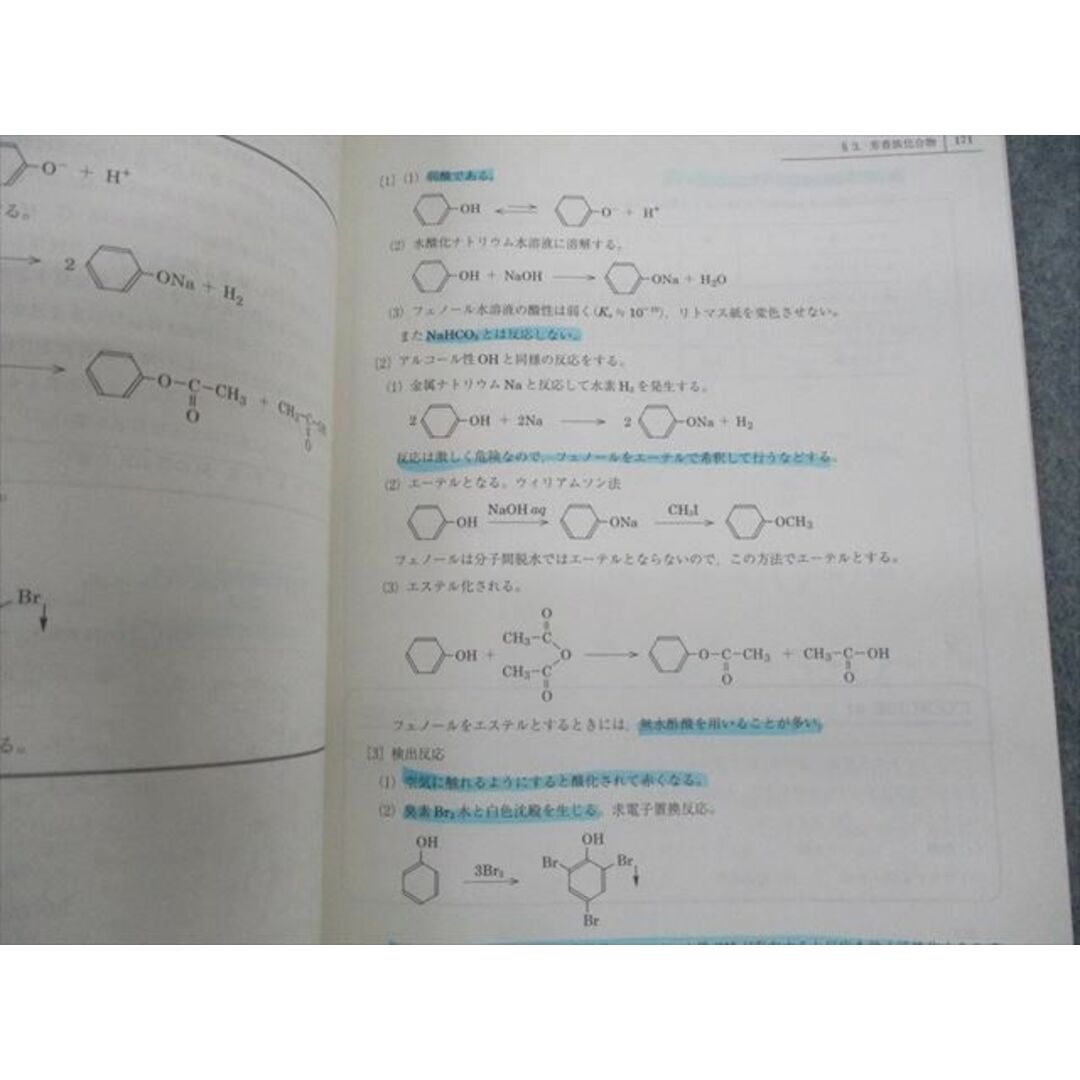 O⁻ + H⁺
る。
2 ONa + H₂
O-C-CH₃ + CH₃-C-OH
O O
Br
る。
§3. 芳香族化合物 171
[1] (1) 弱酸である。
OH ⇄ O⁻ + H⁺
(2) 水酸化ナトリウム水溶液に溶解する。
OH + NaOH → ONa + H₂O
(3) フェノール水溶液の酸性は弱く(Kₐ≒10⁻¹⁰), リトマス紙を変色させない。
またNaHCO₃とは反応しない。
[2] アルコール性OHと同様の反応をする。
(1) 金属ナトリウムNaと反応して水素H₂を発生する。
2 OH + 2Na → 2 ONa + H₂
反応は激しく危険なので, フェノールをエーテルで希釈して行うなどする。
(2) エーテルとなる。ウィリアムソン法
OH NaOH aq → ONa CH₃I → OCH₃
フェノールは分子間脱水ではエーテルとならないので, この方法でエーテルとする。
(3) エステル化される。
O
CH₃-C
OH + O → O-C-CH₃ + CH₃-C-OH
CH₃-C O O
O
フェノールをエステルとするときには, 無水酢酸を用いることが多い。
[3] 検出反応
(1) 空気に触れるようにすると酸化されて赤くなる。
(2) 臭素Br₂水と白色沈殿を生じる。求電子置換反応。
OH OH
3Br₂ → Br Br↓
Br